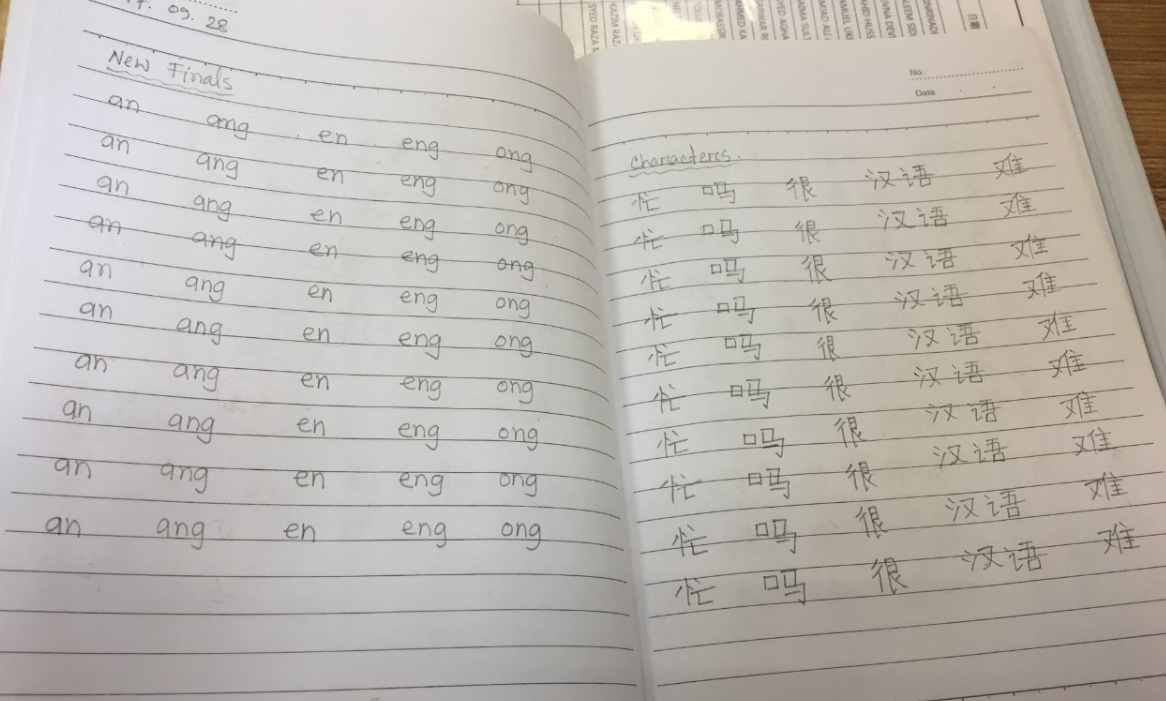 09. 28
New Finals
an ang en eng ong
an ang en eng ong
an ang en eng ong
an ang en eng ong
an ang en eng ong
an ang en eng ong
an ang en eng ong
an ang en eng ong
an ang en eng ong
an ang en eng ong
SYED RAZA
KAZIM
SYED AGHA
日期
No.
Date
Characteres.
忙 吗 很 汉语 难
忙 吗 很 汉语 难
忙 吗 很 汉语 难
忙 吗 很 汉语 难
忙 吗 很 汉语 难
忙 吗 很 汉语 难
忙 吗 很 汉语 难
忙 吗 很 汉语 难
忙 吗 很 汉语 难
忙 吗 很 汉语 难